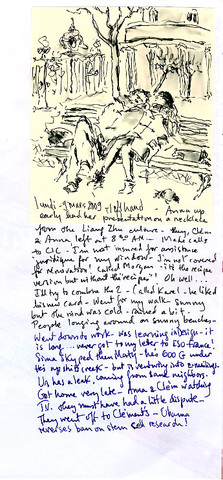 lundi - 9 mars 2009 - Anna up
early had her presentation on a necklace
from the Liang Zhu culture - they, Clém
& Anna left at 8 30 AM - Make calls
to CIC - I'm not insured for assistance
juridique for my window - I'm not covered
for renovation! Called Morgan - it's the recipe
version but without the recipe! Oh well...
I'll try to combine the 2 - Called Karel - he liked
his new card - Went for my walk - sunny
but the wind was cold - rained a bit.
People lounging around on sunny benches -
Went down to work - was learning inDesign - it
is long.... never got to my letter to ESO-France!
Sima skyped then Matty - he's 600 G under
it's up shits creek - but is venturing into
Us has a leak, coming from 2nd neighbors.
Got home very late - Anna & Clém watching
T.V. They must have had a little dispute -
They went off to Clément's - Obama
reverses ban on stem cell research!